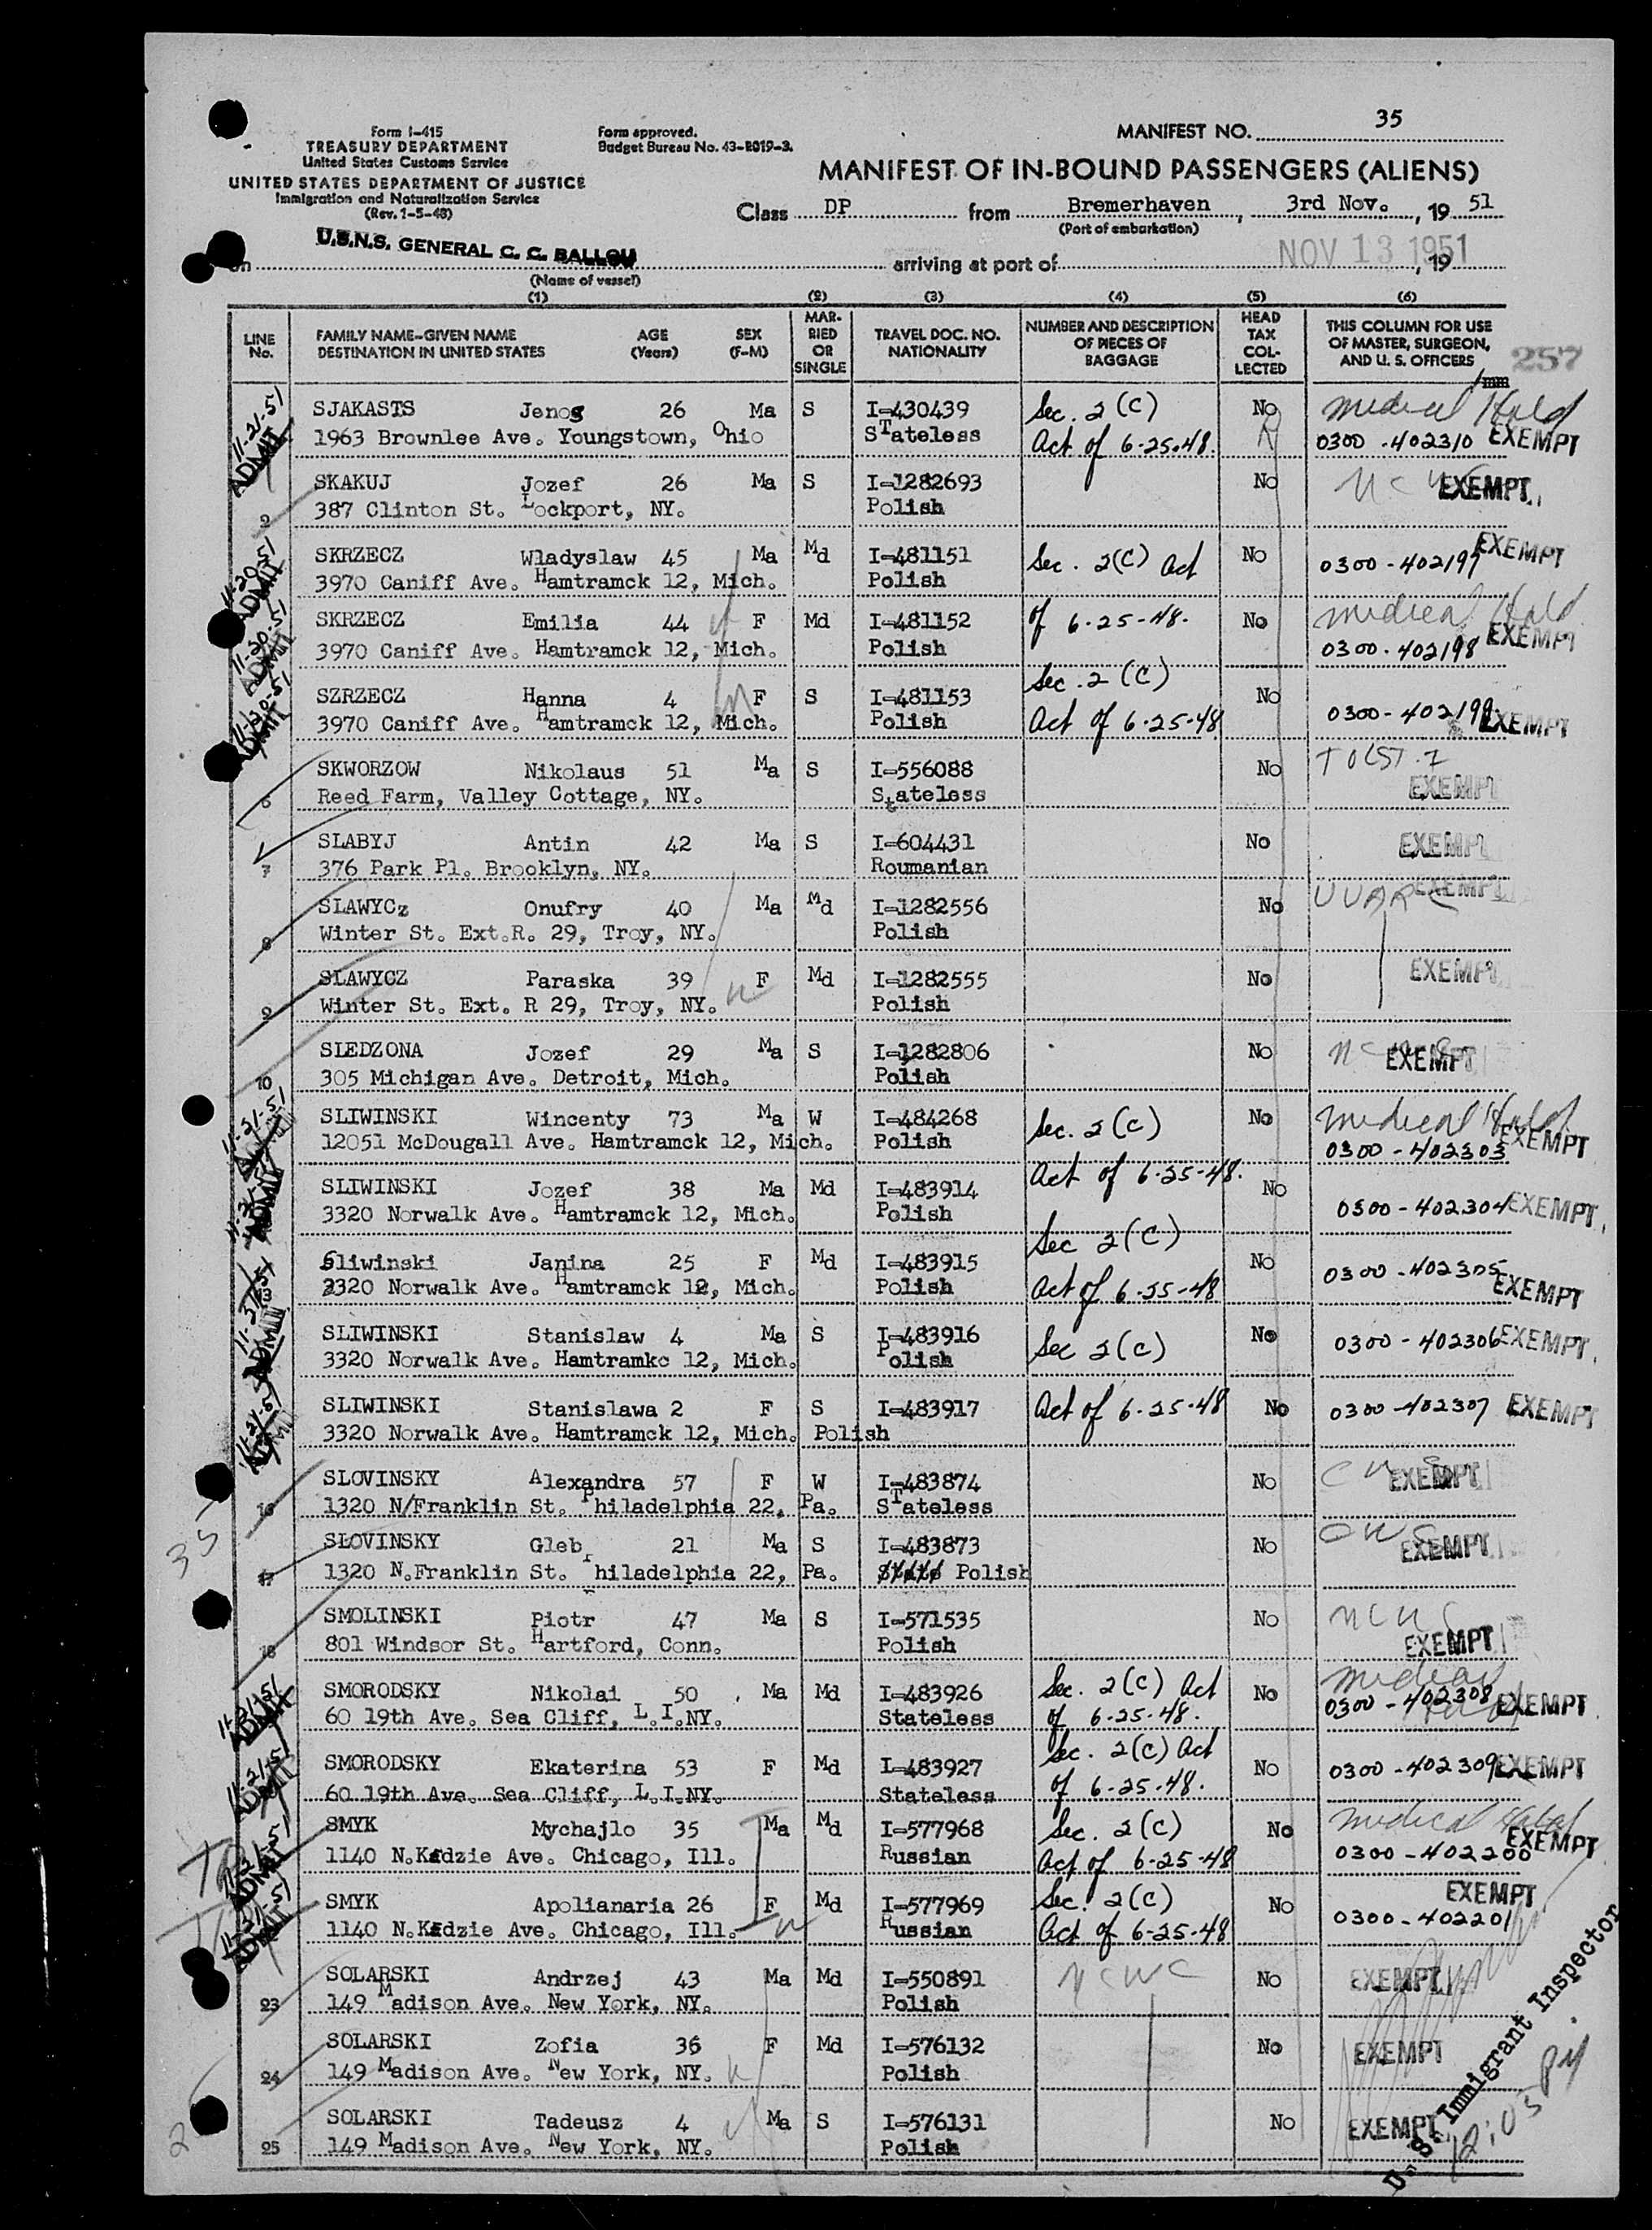 Form I-415
TREASURY DEPARTMENT
United States Customs Service
UNITED STATES DEPARTMENT OF JUSTICE
Immigration and Naturalization Service
(Rev. 1-5-48)
Form approved.
Budget Bureau No. 43-R019-3.
MANIFEST NO. 35
MANIFEST OF IN-BOUND PASSENGERS (ALIENS)
Class DP from Bremerhaven, 3rd Nov., 19 51
(Port of embarkation)
on U.S.N.S. GENERAL C. C. BALLOU arriving at port of NOV 13 1951, 19
(Name of vessel)
(1) (2) (3) (4) (5) (6)
LINE No. FAMILY NAME-GIVEN NAME DESTINATION IN UNITED STATES AGE (Years) SEX (F-M) MARRIED OR SINGLE TRAVEL DOC. NO. NATIONALITY NUMBER AND DESCRIPTION OF PIECES OF BAGGAGE HEAD TAX COLLECTED THIS COLUMN FOR USE OF MASTER, SURGEON, AND U. S. OFFICERS 257
11-21-51 ADMIT SJAKASTS Jenos 26 Ma S I-430439 Sec. 2 (C) No Medical Hold
1963 Brownlee Ave. Youngstown, Ohio STateless Act of 6-25-48. 0300-402310 EXEMPT
SKAKUJ Jozef 26 Ma S I-1282693 No EXEMPT
2 387 Clinton St. Lockport, NY. Polish
11-20-51 ADMIT SKRZECZ Wladyslaw 45 Ma Md I-481151 Sec. 2(C) Act No 0300-402197 EXEMPT
3970 Caniff Ave. Hamtramck 12, Mich. Polish
11-20-51 ADMIT SKRZECZ Emilia 44 F Md I-481152 of 6-25-48. No Medical Hold
3970 Caniff Ave. Hamtramck 12, Mich. Polish 0300-402198 EXEMPT
11-20-51 ADMIT SZRZECZ Hanna 4 F S I-481153 Sec. 2 (C) No
3970 Caniff Ave. Hamtramck 12, Mich. Polish Act of 6-25-48 0300-402199 EXEMPT
SKWORZOW Nikolaus 51 Ma S I-556088 No TOLST.
6 Reed Farm, Valley Cottage, NY. Stateless EXEMPT
SLABYJ Antin 42 Ma S I-604431 No EXEMPT
7 376 Park Pl. Brooklyn, NY. Roumanian
SLAWYCz Onufry 40 Ma Md I-1282556 No UUARC EXEMPT
8 Winter St. Ext.R. 29, Troy, NY. Polish
SLAWYCZ Paraska 39 F Md I-1282555 No EXEMPT
9 Winter St. Ext. R 29, Troy, NY. Polish
SLEDZONA Jozef 29 Ma S I-1282806 No EXEMPT
10 305 Michigan Ave. Detroit, Mich. Polish
11-21-51 ADMIT SLIWINSKI Wincenty 73 Ma W I-484268 Sec. 2 (C) No Medical Hold
12051 McDougall Ave. Hamtramck 12, Mich. Polish 0300-402303 EXEMPT
ADMIT SLIWINSKI Jozef 38 Ma Md I-483914 Act of 6-25-48. No
3320 Norwalk Ave. Hamtramck 12, Mich. Polish 0300-402304 EXEMPT
Sliwinski Janina 25 F Md I-483915 Sec 2(C) No 0300-402305
13 3320 Norwalk Ave. Hamtramck 12, Mich. Polish Act of 6-25-48 EXEMPT
ADMIT SLIWINSKI Stanislaw 4 Ma S I-483916 Sec 2(C) No 0300-402306 EXEMPT
3320 Norwalk Ave. Hamtramkc 12, Mich. Polish
SLIWINSKI Stanislawa 2 F S I-483917 Act of 6-25-48 No 0300-402307 EXEMPT
3320 Norwalk Ave. Hamtramck 12, Mich. Polish
SLOVINSKY Alexandra 57 F W I-483874 No EXEMPT
16 1320 N/Franklin St. Philadelphia 22, Pa. STateless
35
SLOVINSKY Gleb 21 Ma S I-483873 No CWS EXEMPT
17 1320 N.Franklin St. Philadelphia 22, Pa. State Polish
SMOLINSKI Piotr 47 Ma S I-571535 No NCWC
18 801 Windsor St. Hartford, Conn. Polish EXEMPT
ADMIT SMORODSKY Nikolai 50 Ma Md I-483926 Sec. 2(C) Act No Medical Hold
60 19th Ave. Sea Cliff, L.I.NY. Stateless of 6-25-48. 0300-402308 EXEMPT
ADMIT SMORODSKY Ekaterina 53 F Md I-483927 Sec. 2(C) Act No 0300-402309 EXEMPT
60 19th Ave. Sea Cliff, L.I.NY. Stateless of 6-25-48.
ADMIT SMYK Mychajlo 35 Ma Md I-577968 Sec. 2(C) No Medical Hold
1140 N.Kedzie Ave. Chicago, Ill. Russian Act of 6-25-48 0300-402200 EXEMPT
ADMIT SMYK Apolianaria 26 F Md I-577969 Sec. 2(C) No EXEMPT
1140 N.Kedzie Ave. Chicago, Ill. Russian Act of 6-25-48 0300-402201
SOLARSKI Andrzej 43 Ma Md I-550891 NCWC No EXEMPT
23 149 Madison Ave. New York, NY. Polish
SOLARSKI Zofia 36 F Md I-576132 No EXEMPT
24 149 Madison Ave. New York, NY. Polish
SOLARSKI Tadeusz 4 Ma S I-576131 No EXEMPT
25 149 Madison Ave. New York, NY. Polish
U. S. Immigrant Inspector
12:05 PM